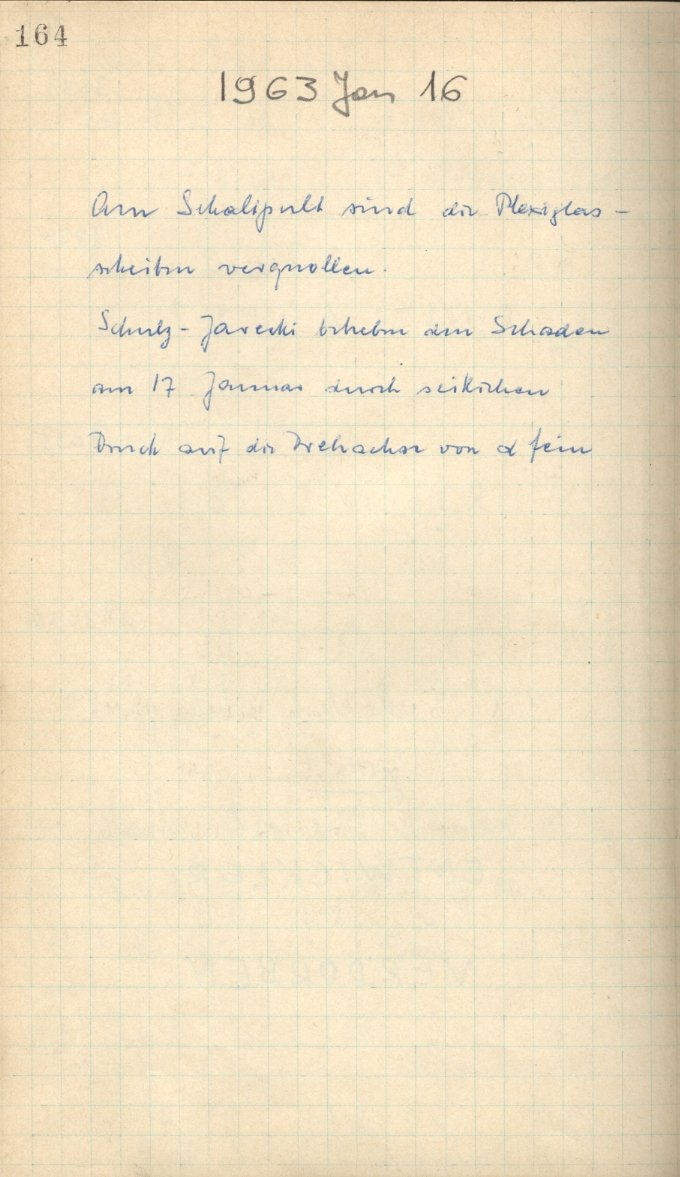 164
1963 Jan 16
Am Schaltpult sind die Plexiglas-
scheiben verquollen.
Schulz-Jarecki beheben den Schaden
am 17 Januar durch seitlichen
Druck auf die Drehachse von α fein